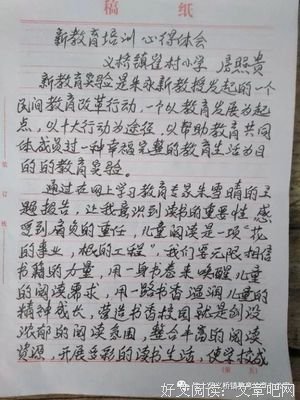 稿 纸
新教育培训心得体会
义桥镇崔村小学 房照贵
新教育实验是朱永新教授发起的一个
民间教育改革行动，一个以教育发展为起
点，以十大行动为途径，以帮助教育共同
体成员过一种幸福完整的教育生活为目
的的教育实验。
通过在网上学习教育专家朱雪晴的主
题报告，让我意识到读书的重要性，感
受到肩负的重任，儿童阅读是一项“花
的事业，根的工程”，我们要无限相信
书籍的力量，用一身书卷来唤醒儿童
的阅读需求，用一路书香温润儿童的
精神成长，营造书香校园就是创设
浓郁的阅读氛围，整合丰富的阅读
资源，开展多彩的读书生活，使学校成
装 订 线
义桥镇教育
好文阅读：文章吧网